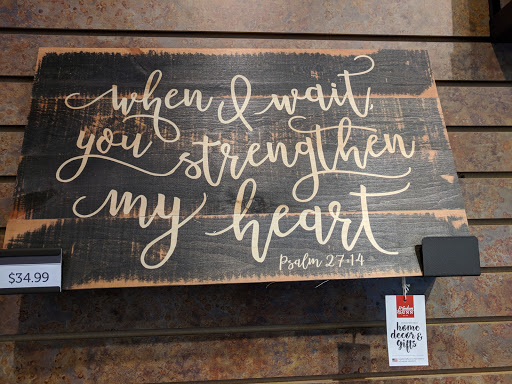 when I wait,
you strengthen
my heart
Psalm 27•14
$34.99
home
decor &
gifts